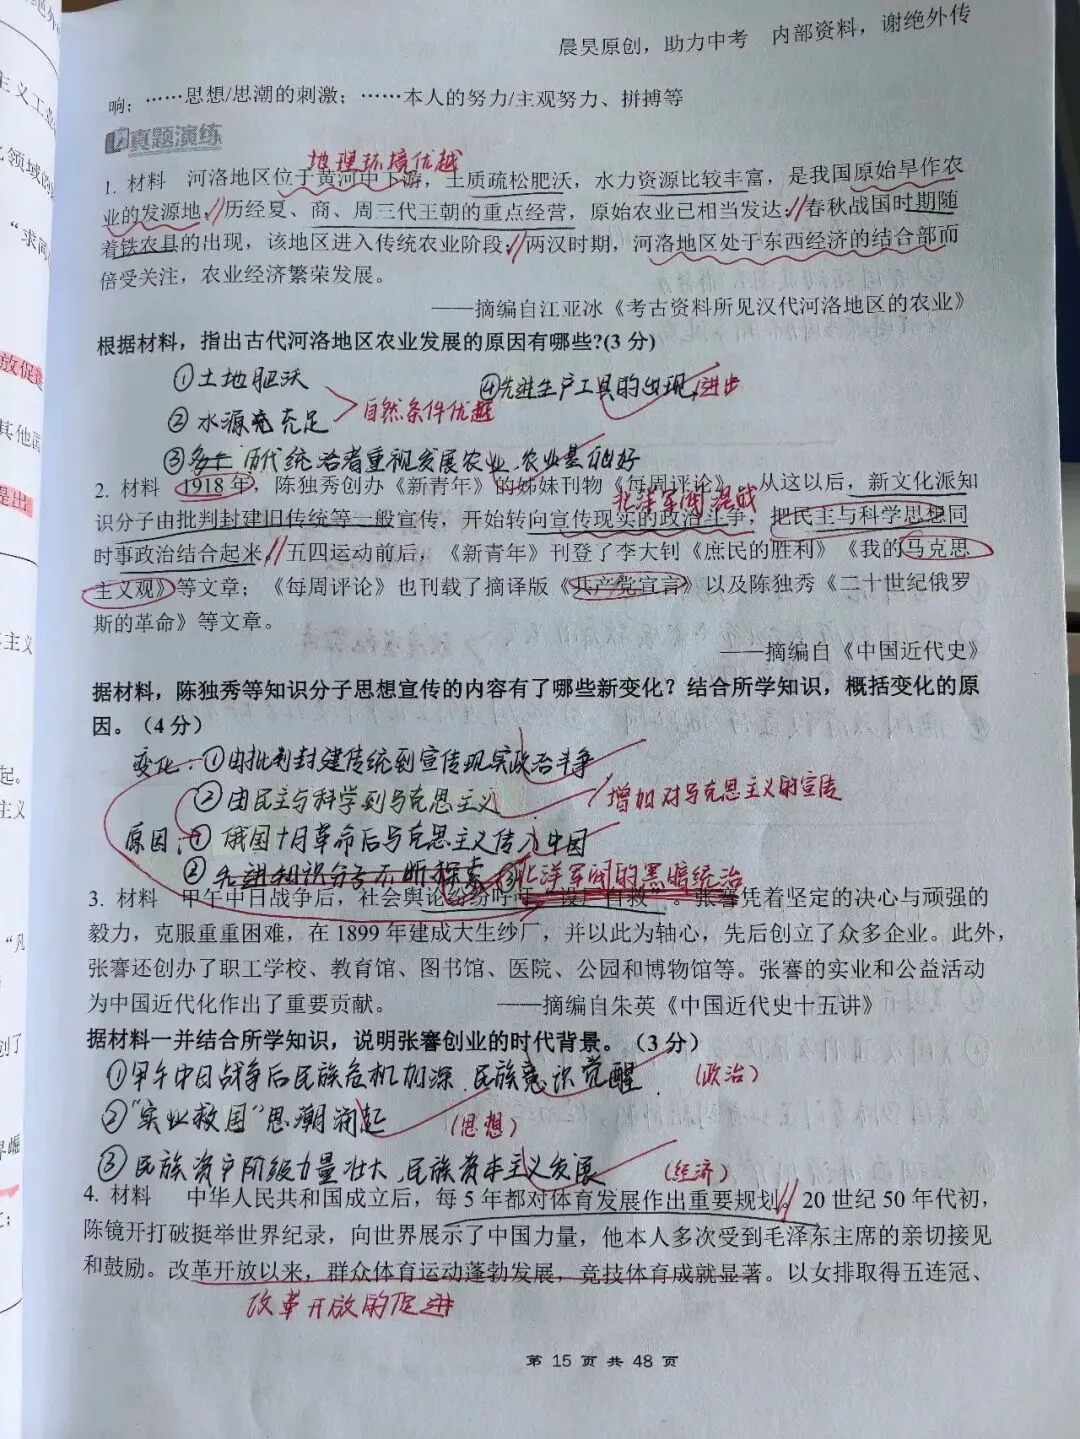 晨昊原创，助力中考　内部资料，谢绝外传
响；……思想/思潮的刺激；……本人的努力/主观努力、拼搏等
真题演练
地理环境优越
1. 材料　河洛地区位于黄河中下游，土质疏松肥沃，水力资源比较丰富，是我国原始旱作农
业的发源地；历经夏、商、周三代王朝的重点经营，原始农业已相当发达；春秋战国时期随
着铁农具的出现，该地区进入传统农业阶段；两汉时期，河洛地区处于东西经济的结合部而
倍受关注，农业经济繁荣发展。
——摘编自江亚冰《考古资料所见汉代河洛地区的农业》
根据材料，指出古代河洛地区农业发展的原因有哪些?(3 分)
①土地肥沃　④先进生产工具的出现，进步
自然条件优越
②水源充足
③历代统治者重视发展农业、农业基础好
2. 材料　1918 年，陈独秀创办《新青年》的姊妹刊物《每周评论》。从这以后，新文化派知
北洋军阀混战
识分子由批判封建旧传统等一般宣传，开始转向宣传现实的政治斗争，把民主与科学思想同
时事政治结合起来。五四运动前后，《新青年》刊登了李大钊《庶民的胜利》《我的马克思
主义观》等文章；《每周评论》也刊载了摘译版《共产党宣言》以及陈独秀《二十世纪俄罗
斯的革命》等文章。
——摘编自《中国近代史》
据材料，陈独秀等知识分子思想宣传的内容有了哪些新变化？结合所学知识，概括变化的原
因。（4 分）
变化：①由批判封建传统到宣传现实政治斗争
②由民主与科学到马克思主义　增加对马克思主义的宣传
原因：①俄国十月革命后马克思主义传入中国
②先进知识分子不断探索　③北洋军阀的黑暗统治
3. 材料　甲午中日战争后，社会舆论纷纷呼吁“设厂自救”。张謇凭着坚定的决心与顽强的
毅力，克服重重困难，在 1899 年建成大生纱厂，并以此为轴心，先后创立了众多企业。此外，
张謇还创办了职工学校、教育馆、图书馆、医院、公园和博物馆等。张謇的实业和公益活动
为中国近代化作出了重要贡献。　——摘编自朱英《中国近代史十五讲》
据材料一并结合所学知识，说明张謇创业的时代背景。（3 分）
①甲午中日战争后民族危机加深、民族意识觉醒　（政治）
②“实业救国”思潮兴起　（思想）
③民族资产阶级力量壮大、民族资本主义发展　（经济）
4. 材料　中华人民共和国成立后，每 5 年都对体育发展作出重要规划。20 世纪 50 年代初，
陈镜开打破挺举世界纪录，向世界展示了中国力量，他本人多次受到毛泽东主席的亲切接见
和鼓励。改革开放以来，群众体育运动蓬勃发展，竞技体育成就显著。以女排取得五连冠、
改革开放的促进
第 15 页 共 48 页